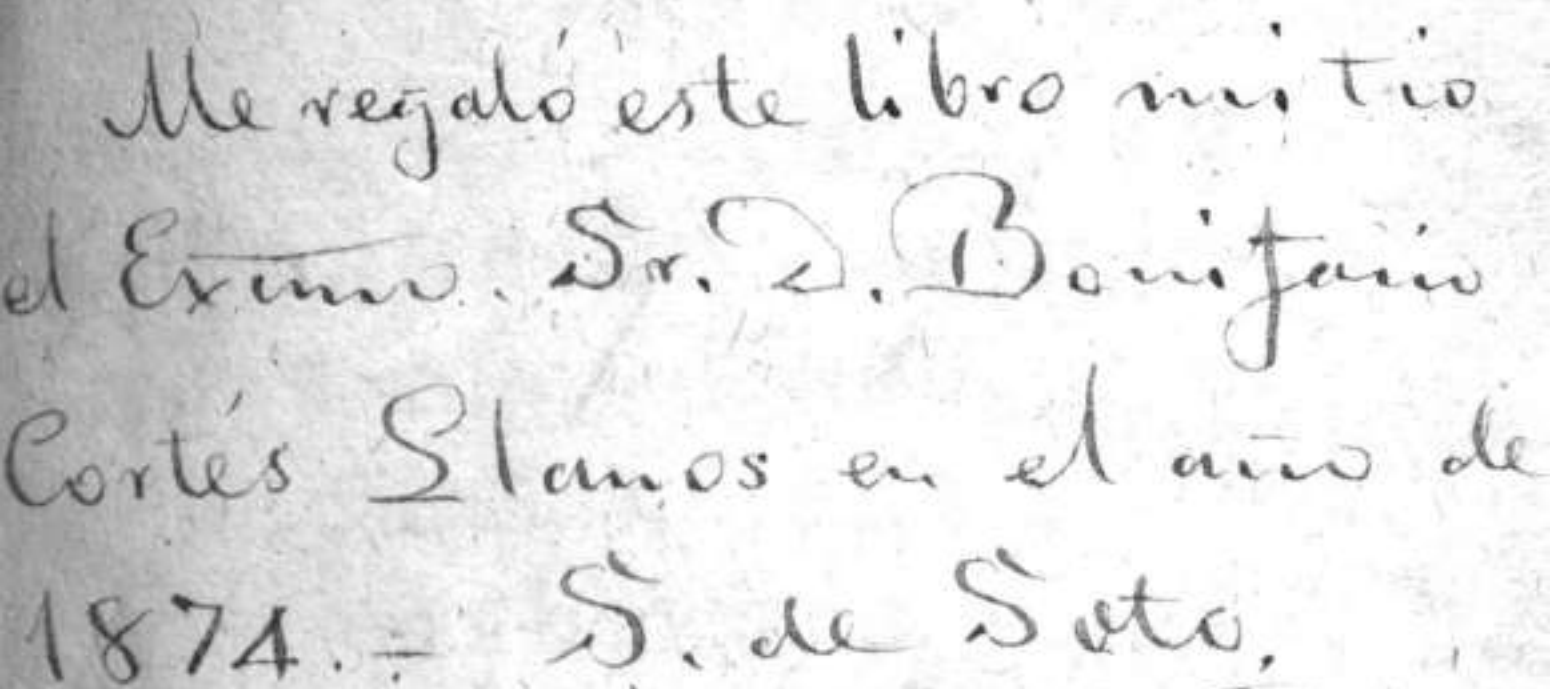 Me regaló este libro mi tio
el Exmo. Sr. D. Bonifacio
Cortés Llanos en el año de
1874.- S. de Soto.